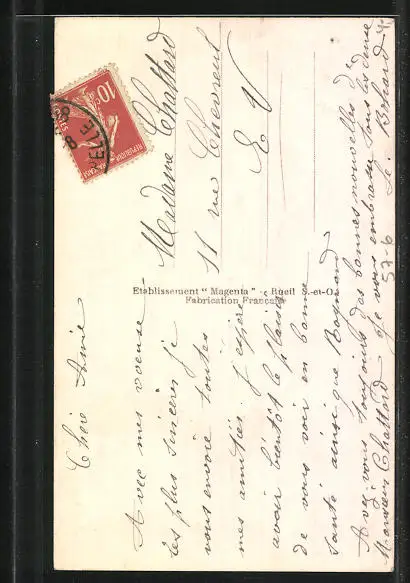 Chère Amie
Avec mes voeux
les plus sincères je
vous envoie toutes
mes amitiés j'espère
avoir bientôt le plaisir
de vous voir en bonne
santé ainsi que Raymond
Avez vous toujours des bonnes nouvelles de
Monsieur Chattard je vous embrasse tous les deux
Madame Chattard
11 rue Chevreul
E V
Etablissement " Magenta " - Rueil S.-et-O.
Fabrication Française
10c
POSTES
REPUBLIQUE FRANÇAISE
ELLE
57-6